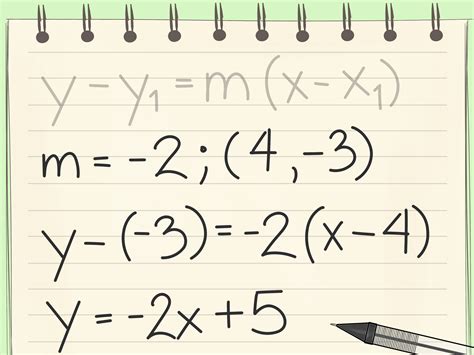 y - y₁ = m(x - x₁)
m = -2; (4, -3)
y - (-3) = -2(x - 4)
y = -2x + 5